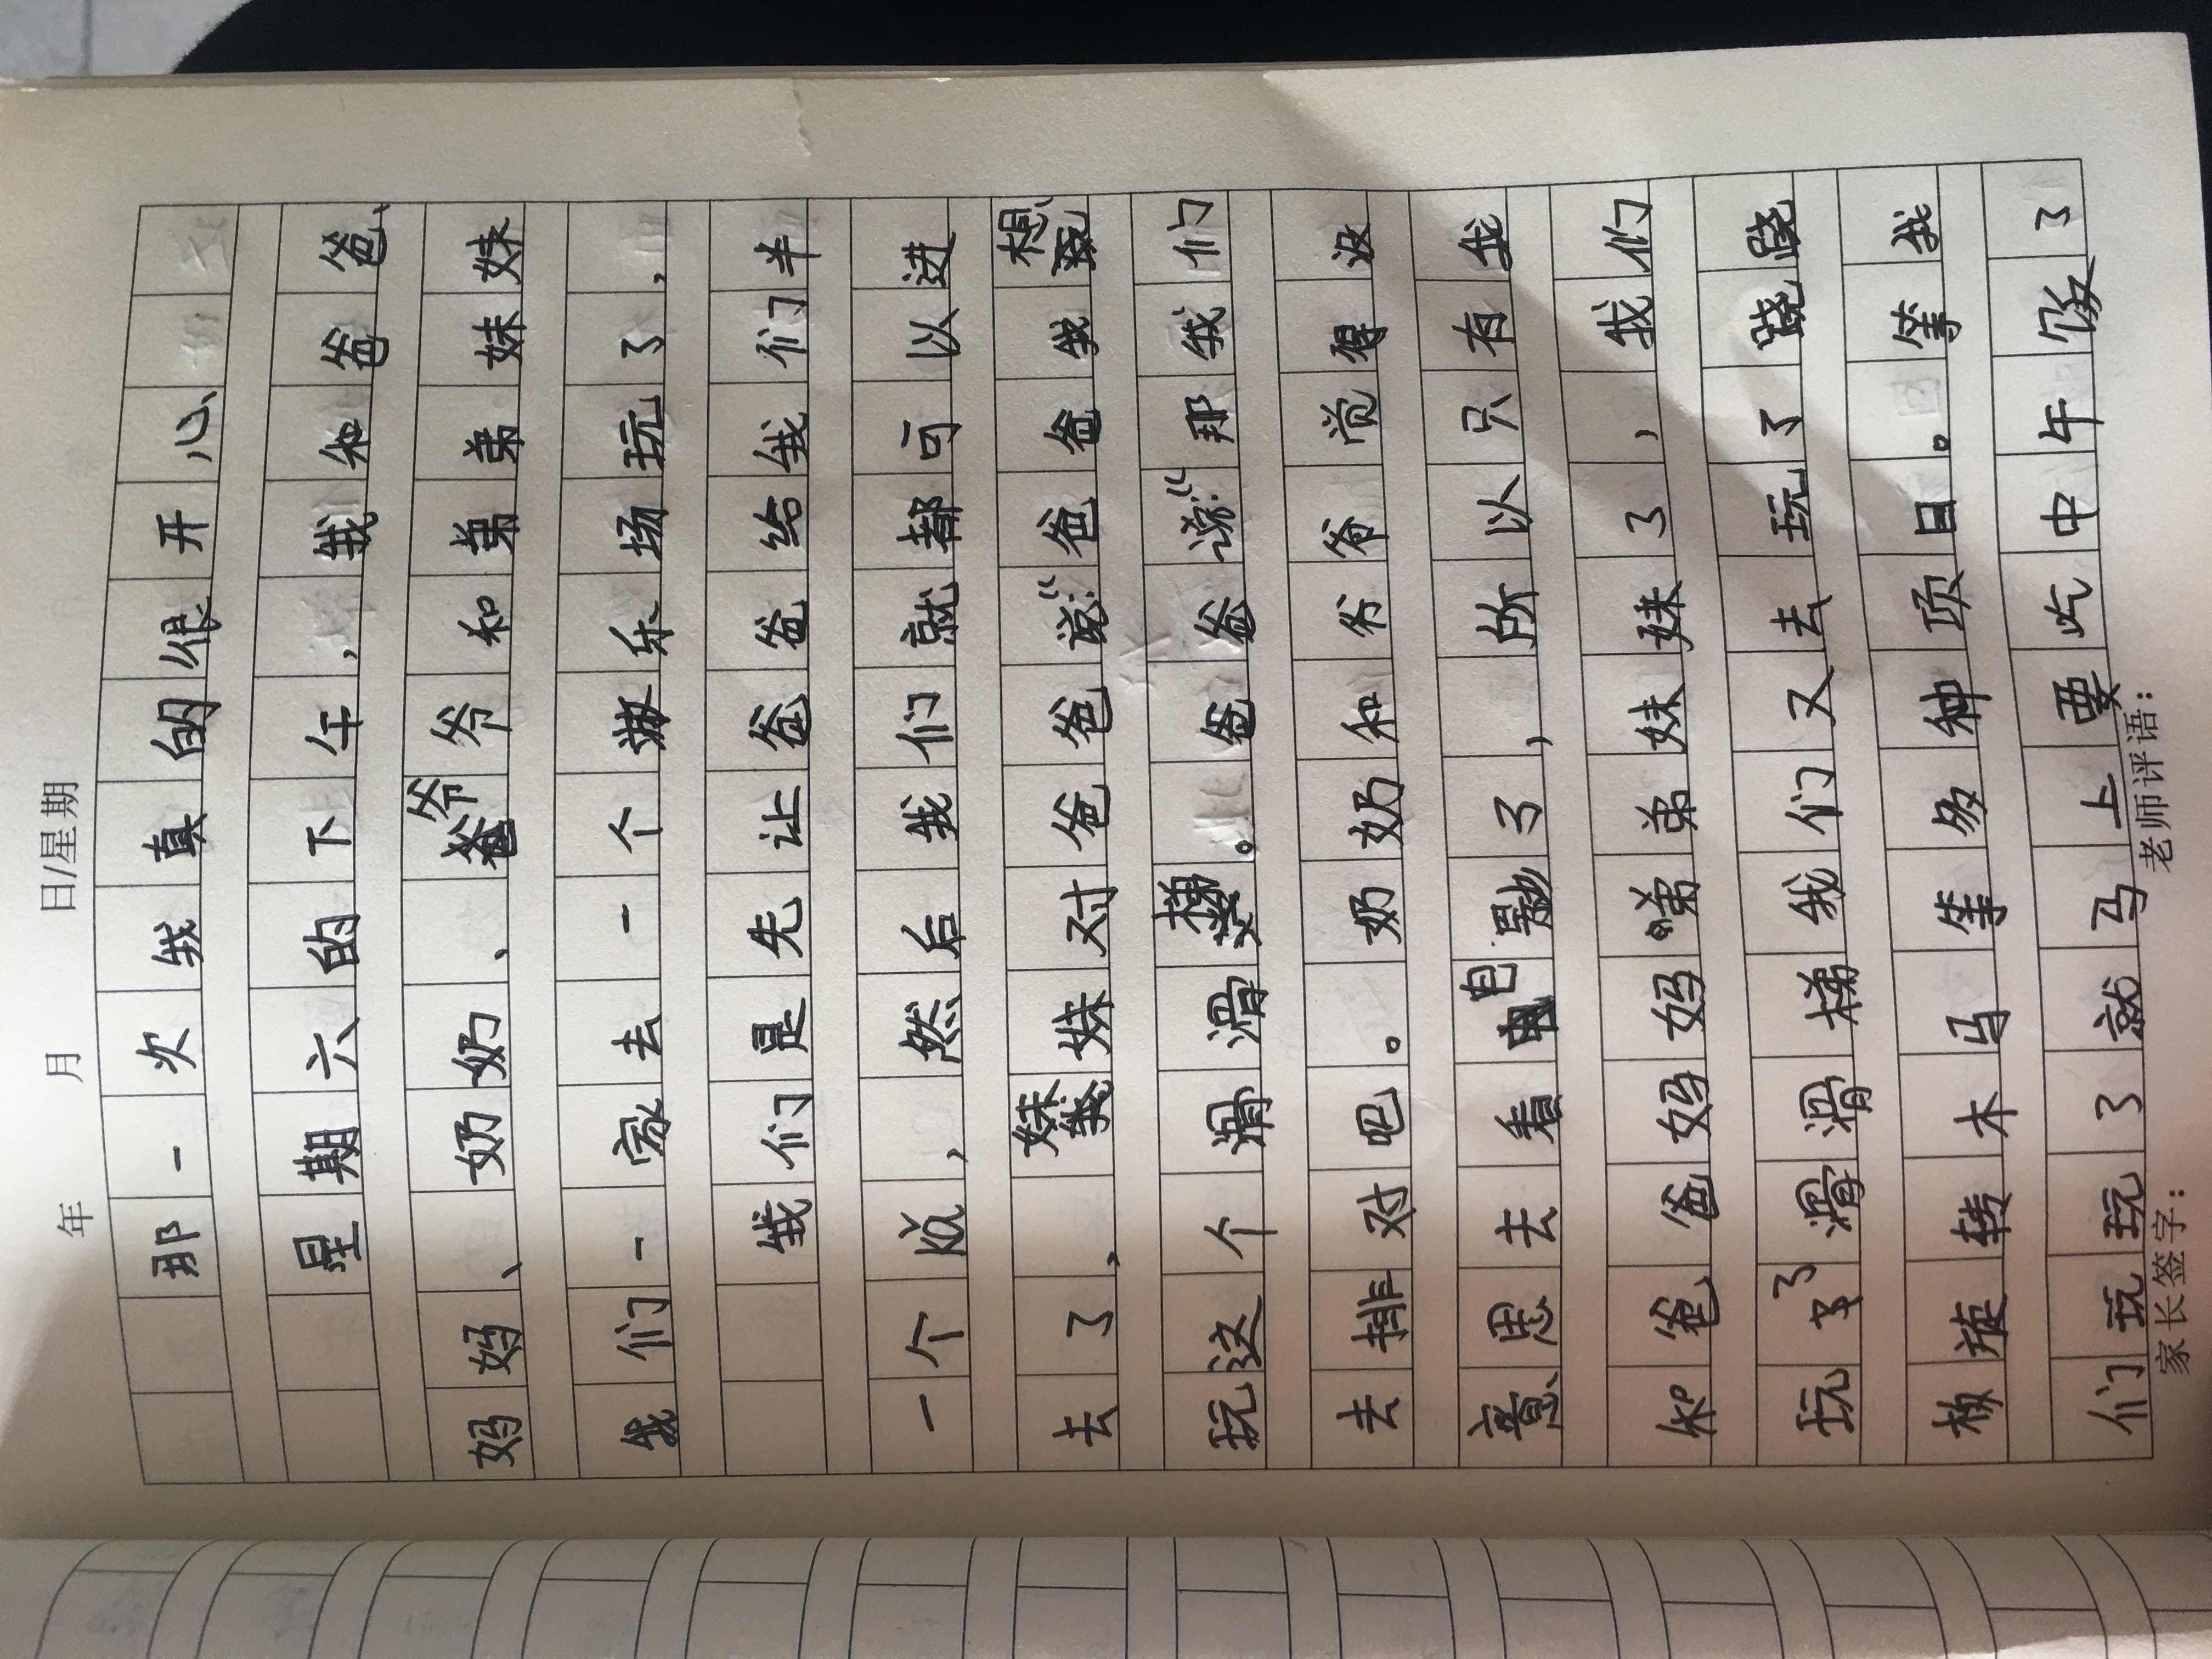 年 月 日/星期
那一次我真的很开心
星期六的下午，我和爸爸、
妈妈、奶奶、爷爷和弟弟妹妹
我们一家去一个游乐场玩了，
我们是先让爸爸给我们半
一个,然后我们就都可以进
去了，妹妹对爸爸说：“爸爸我想
玩这个滑滑梯。爸爸说：“那我们
去排对吧。奶奶和爷爷觉得没
意思去看电影了，所以只有我
和爸爸妈妈弟妹妹了，我们
玩了滑滑梯我们又去玩了跷跷
板旋转木马等多种项目。等我
们玩玩了就马上要吃中午饭了
家长签字： 老师评语：